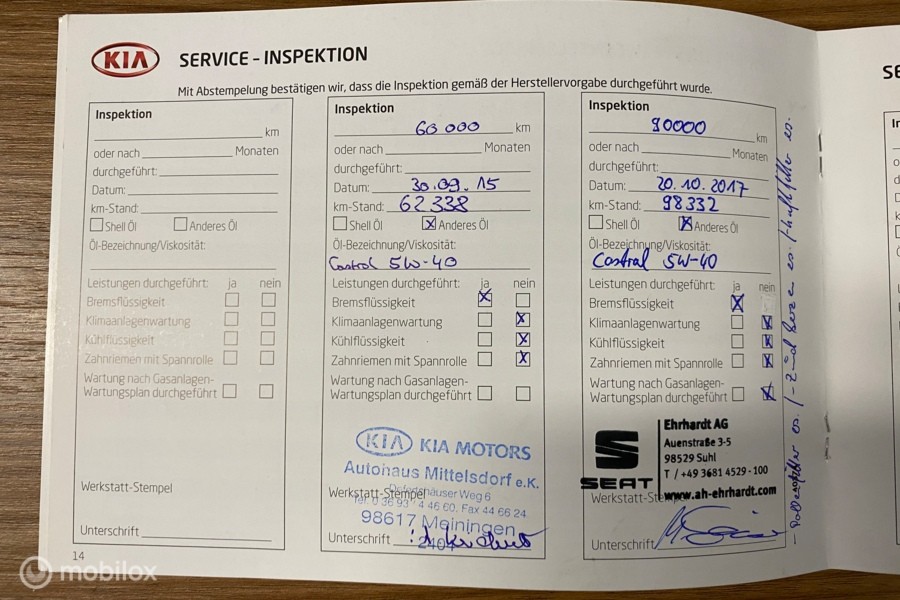 KIA SERVICE - INSPEKTION
Mit Abstempelung bestätigen wir, dass die Inspektion gemäß der Herstellervorgabe durchgeführt wurde.
Inspektion
km
oder nach Monaten
durchgeführt:
Datum:
km-Stand:
Shell Öl Anderes Öl
Öl-Bezeichnung/Viskosität:
Leistungen durchgeführt: ja nein
Bremsflüssigkeit
Klimaanlagenwartung
Kühlflüssigkeit
Zahnriemen mit Spannrolle
Wartung nach Gasanlagen-
Wartungsplan durchgeführt
Werkstatt-Stempel
Unterschrift
14
Inspektion
60 000 km
oder nach Monaten
durchgeführt:
Datum: 30.09.15
km-Stand: 62338
Shell Öl x Anderes Öl
Öl-Bezeichnung/Viskosität:
Castrol 5W-40
Leistungen durchgeführt: ja nein
Bremsflüssigkeit x
Klimaanlagenwartung x
Kühlflüssigkeit x
Zahnriemen mit Spannrolle x
Wartung nach Gasanlagen-
Wartungsplan durchgeführt
KIA KIA MOTORS
Autohaus Mittelsdorf e.K.
Werkstatt-Stempel
Fax 44 66 24
98617 Meiningen
Unterschrift
Inspektion
90000 km
oder nach Monaten
durchgeführt:
Datum: 20.10.2017
km-Stand: 98332
Shell Öl x Anderes Öl
Öl-Bezeichnung/Viskosität:
Castral 5W-40
Leistungen durchgeführt: ja nein
Bremsflüssigkeit x
Klimaanlagenwartung x
Kühlflüssigkeit x
Zahnriemen mit Spannrolle x
Wartung nach Gasanlagen-
Wartungsplan durchgeführt x
SEAT
Ehrhardt AG
Auenstraße 3-5
98529 Suhl
T / +49 3681 4529 - 100
www.ah-ehrhardt.com
Werkstatt-Stempel
Unterschrift
mobilox